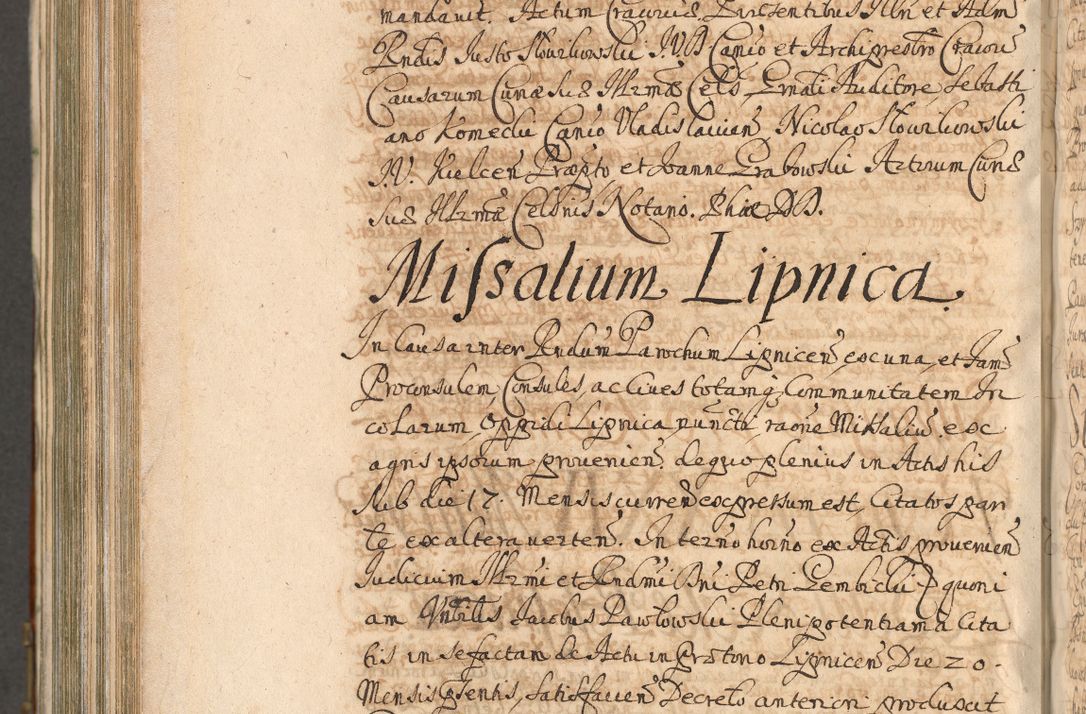 mandavit. Actum Cracoviæ Præsentibus Illri et Adm
Rndis Iusto Słowikowski I.V.D Canco et Archipresbro Cracovi
Causarum Curiæ Suæ Illrmæ Cels. Grnali Auditore, Sebasti
ano Komecki Canco Vladislavien, Nicolao Słowikowski
I.V. Kielcen Præpto, et Ioanne Grabowski Actorum Curiæ
Suæ Illrmæ Celsnis Notario. Phiæ DD.
Missalium Lipnica.
In Causa inter Rndum Parochum Lipnicen ex una, et Fam
Proconsulem, Consules, ac Cives totamq; Communitatem In
colarum, Oppidi Lipnica, puncti raone Missaliu. ex
agris ipsorum provenien. de quo plenius in Actis his
sub die 17. Mensis curren expressum est, Citatos par
te ex altera verten. In termo horno ex Actis provenien
Iudicium Illrmi et Rndmi Dni Petri Gembicki quoni
am Iacobus Pawlowski Plenipotentiam a Cita
tis in se factam de Actu in Prætorio Lipnicen Die 20.
Mensis psentis, satisfacien Decreto anteriori produxit